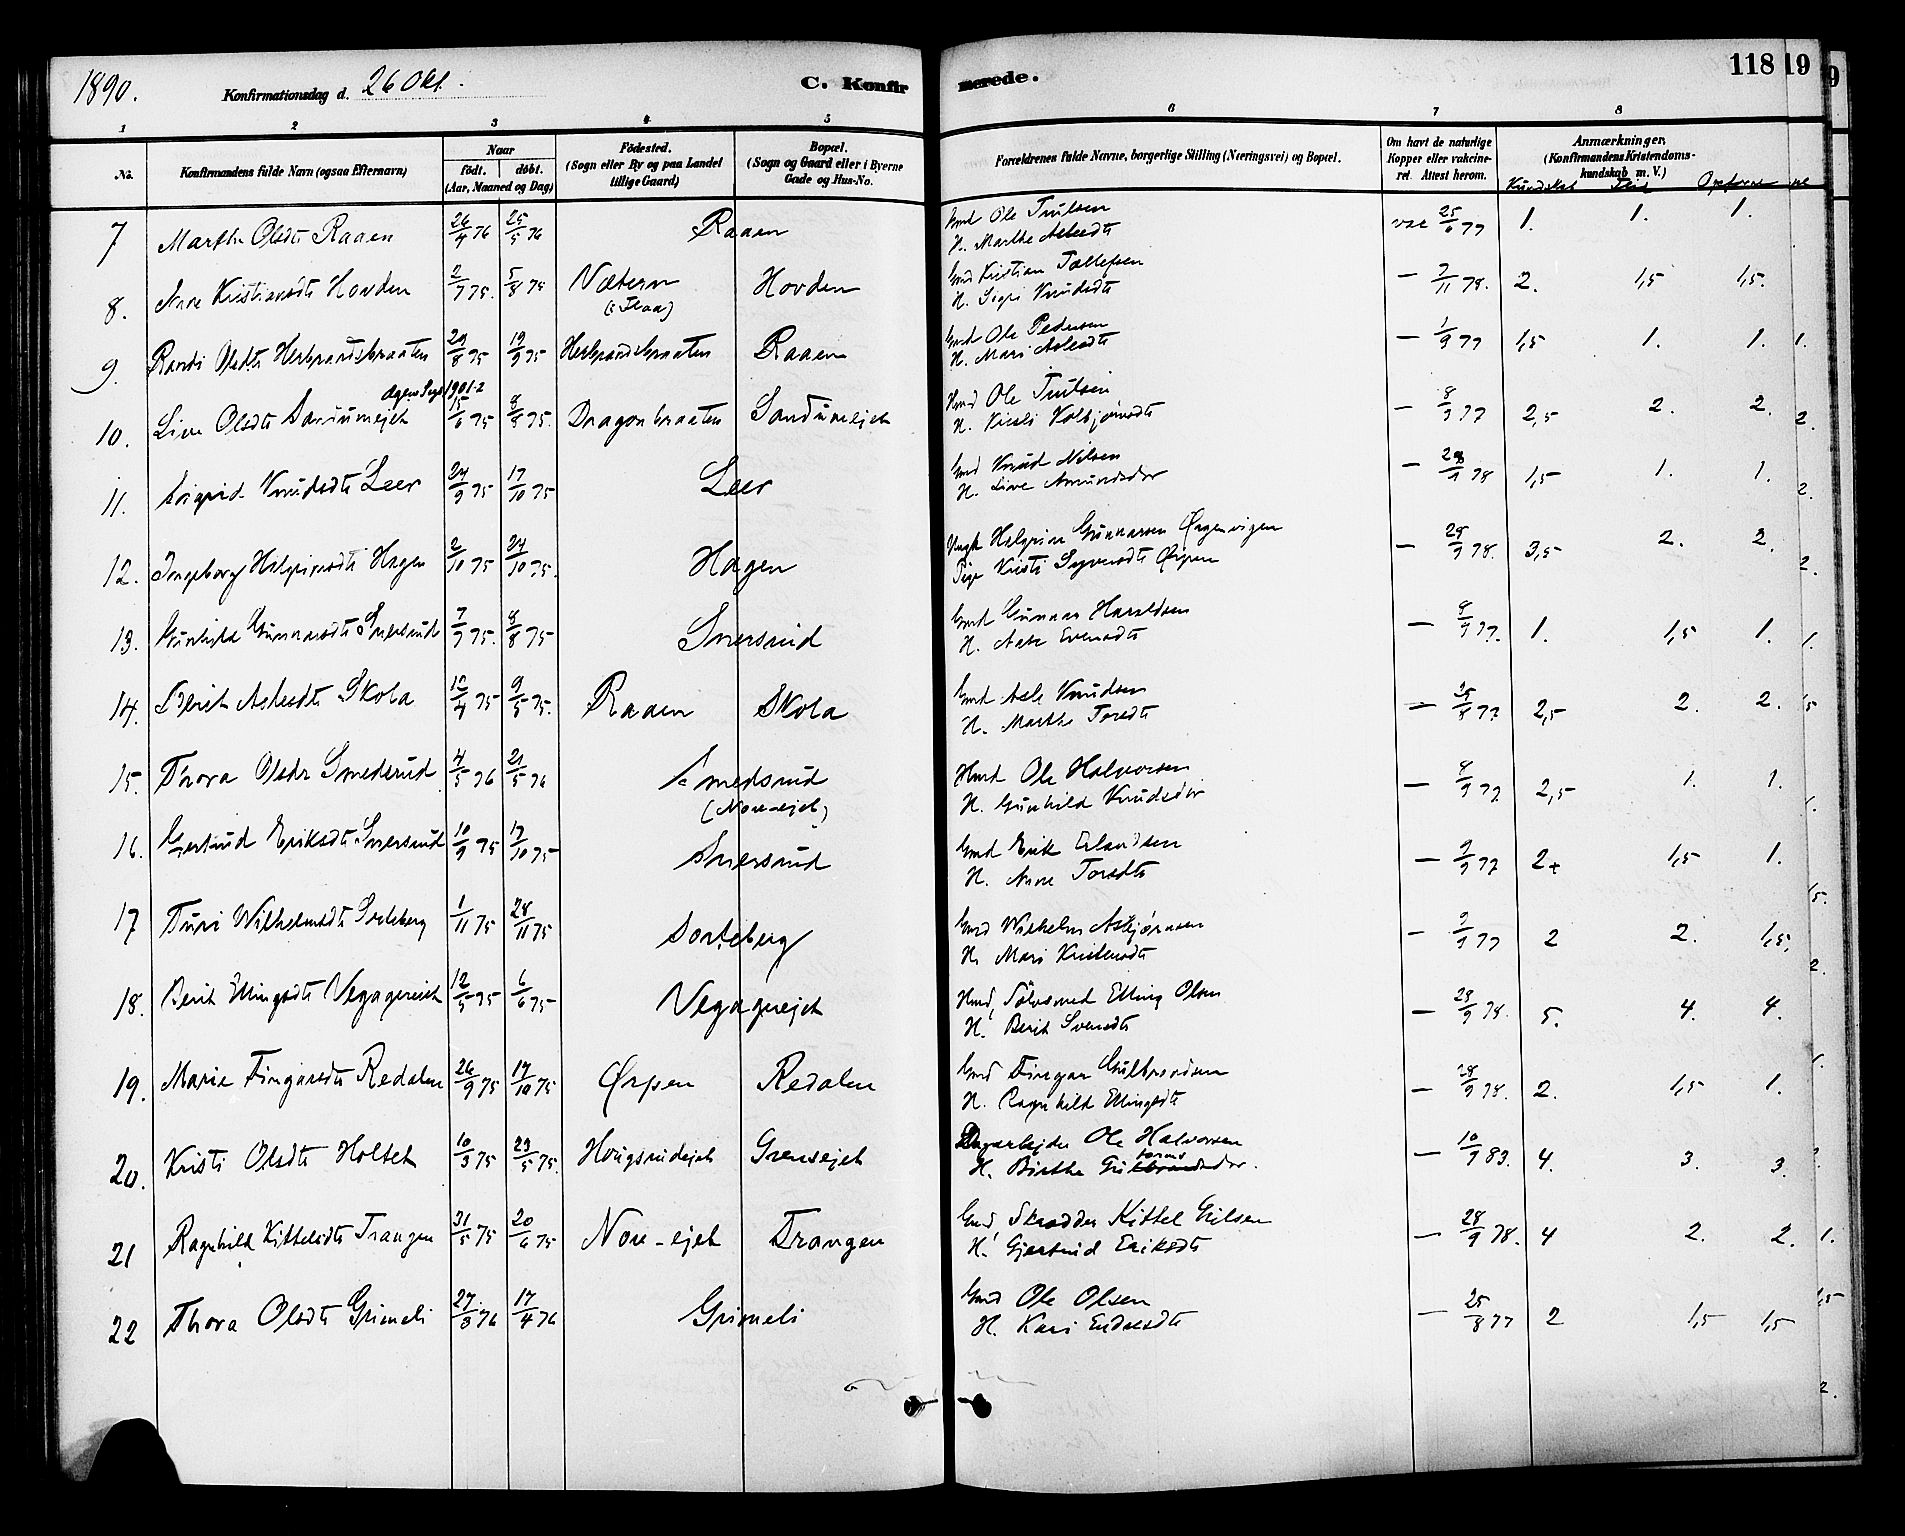 1890. Konfirmationsdag d. 26 Okt. C. Konfirmerede. 118 19 9
1 2 3 4 5 6 7 8
No. Konfirmandens fulde Navn (ogsaa Efternavn) Naar født. døbt. (Aar, Maaned og Dag) Födested. (Sogn eller By og paa Landet tillige Gaard) Bopæl. (Sogn og Gaard eller i Byerne Gade og Hus-No. Forældrenes fulde Navne, borgerlige Stilling (Næringsvei) og Bopæl. Om havt de naturlige Kopper eller vakcineret. Attest herom. Anmærkninger, (Konfirmandens Kristendomskundskab m. V.) Kundskab Flid
7 Marthe Olsdt Raaen 26/4 76 25/5 76 Raaen Gmd Ole Trulsen
H. Marthe Aslesdt vac 25/6 77 1. 1. 1.
8. Anne Kristiansdt Hovden 2/7 75. 5/8 75 Næteren Hovden Gmd Kristian Tollefsen
(: Flaa) H. Sigri Knudsdt — 7/11 78. 2. 1,5 1,5.
9. Randi Olsdt Herbrandsbraaten 29/8 75 19/9 75 Herbrandsbraaten Raaen Gmd Ole Pedersen
H. Mari Aslesdt — 1/9 77 1,5 1. 1.
10. Live Olsdt Sandumejet 15/6 75 8/8 75. Dragonbraaten Sandumejet Hmd Ole Trulsen
H. Kirsti Kolbjørnsdt — 8/9 77 2,5 2. 2.
11. Sigrid Knudsdt Leer 24/9 75 17/10 75 Leer Gmd Knud Nilsen
H. Live Amundsdor — 28/9 78 1,5 1. 1.
12. Ingeborg Helgesdt Hagen 2/10 75 24/10 75. Hagen Gunnarsen Ørgenvigen
Pige Kristi Ørpen — 28/9 78. 3,5 2. 2.
13. Gunhild Gunnarsdt Snersrud 7/7 75. 8/8 75 Snersrud Gmd Gunnar Haraldsen
H. Evensdt — 8/9 77. 1. 1,5 1.
14. Berit Aslesdt Skola 12/4 75 9/5 75. Raaen Skola Gmd Asle Knudsen
H. Marthe Toresdt — 25/8 77 2,5 2. 2.
15. Thora Olsdr Smedsrud 4/5 76 21/5 76 Smedsrud Hmd Ole Halvorsen
(Nore-ejet) H. Gunhild Knudsdor — 8/9 77 2,5 1. 1.
16. Gjertrud Eriksdt Snersrud 10/9 75 17/10 75 Snersrud Gmd Erik Erlandsen
H. Anne Toresdt — 7/9 77 2+ 1,5 1.
17 Turi Wilhelmsdt Sorteberg 1/11 75 28/11 75 Sorteberg Gmd Wilhelm Asbjørnsen
H. Mari Kristensdt — 7/9 77 2 2. 1,5.
18. Berit Ellingsdt Vegagerejet 12/5 75 6/6 75 Vegagerejet Hmd, Elling Olsen
H. Berit Svensdt — 28/9 78. 5. 4. 4.
19. Marie Fingarsdt Redalen 26/9 75 17/10 75 Ørpen Redalen Gmd Fingar Gulbrandsen
H. Ragnhild Ellingsdt — 28/9 78. 2. 1,5 1.
20. Kristi Olsdt Holtet 10/3 75 23/5 75. Haugsrudejet Grensejet Dagarbejder Ole Halvorsen
H. Birthe — 10/9 83. 4. 3. 3.
21 Ragnhild Kittelsdt Trangen 31/5 75 20/6 75 Nore-ejet Trangen Gmd Skrædder Kittel Eilsen
H. Gjertrud Eriksdt — 28/9 78. 4 2. 2.
22 Thora Olsdt Grimeli 27/3 76 17/4 76 Grimeli Gmd Ole Olsen
H. Kari Endresdt — 25/8 77 2 1,5 1,5